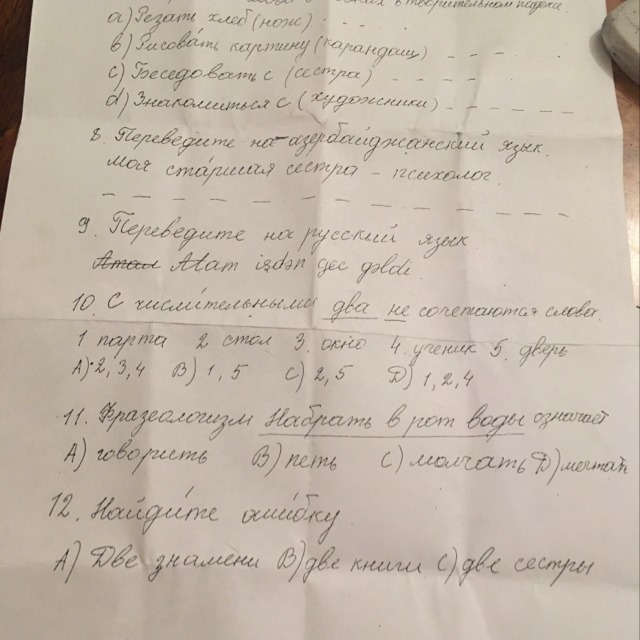 в творительном падеже.
a) Резать хлеб (нож) - - - -
b) Рисовать картину (карандаш) - - - -
c) Беседовать с (сестра) - - - -
d) Знакомиться с (художники) - - - - - -
8. Переведите на азербайджанский язык.
Моя старшая сестра - психолог.
- - - - - - - - - - - -
9. Переведите на русский язык
Atam işdən gec gəldi.
10. С числительными два не сочетаются слова.
1. парта 2 стол 3. окно 4. ученик 5. дверь
A) 2, 3, 4 B) 1, 5 C) 2, 5 D) 1, 2, 4
11. Фразеологизм Набрать в рот воды означает
A) говорить B) петь C) молчать D) мечтать
12. Найдите ошибку
A) Две знамени B) две книги C) две сестры